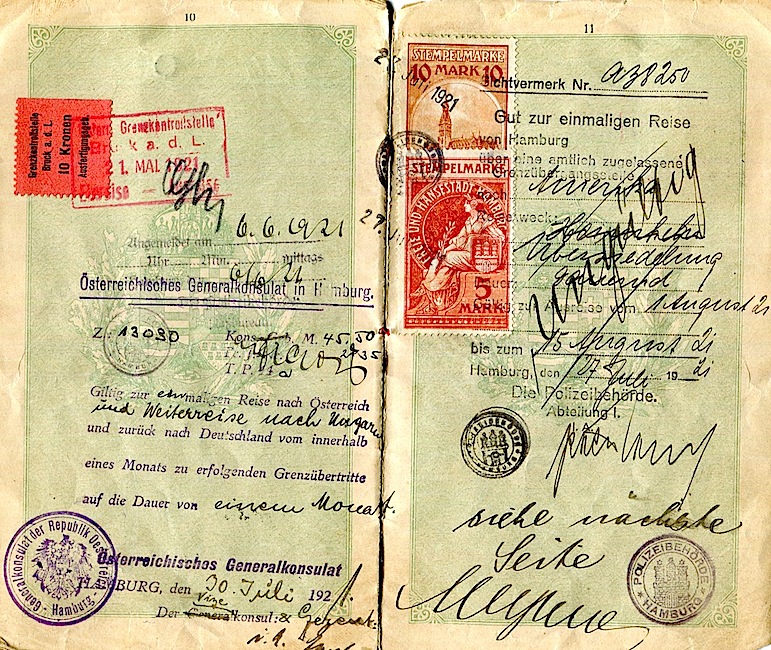 10
Grenzkontrollstelle
Bruck a. d. L.
10 Kronen
Ausfertigungsgeb.
Grenzkontrollstelle
Bruck a. d. L.
21. MAI. 1921
Angemeldet am 6.6.1921
Uhr Min. mittags
6/6 21
Österreichisches Generalkonsulat in Hamburg.
Z. 13090
M. 45.50
T. P.
Giltig zur einmaligen Reise nach Österreich
und Weiterreise nach Ungarn
und zurück nach Deutschland vom innerhalb
eines Monats zu erfolgenden Grenzübertritte
auf die Dauer von einem Monat.
Österreichisches Generalkonsulat
HAMBURG, den 30. Juli 192
Der Vize Generalkonsul:
Generalkonsulat der Republik Oesterreich
- Hamburg -
11
STEMPELMARKE
10 MARK 10
27. Juli 1921
STEMPELMARKE
FREIE UND HANSESTADT HAMBURG
5
MARK
Sichtvermerk Nr. A38250
Gut zur einmaligen Reise
von Hamburg
über eine amtlich zugelassene
Grenzübergangsstelle
nach Amerika
Reisezweck:
Übersiedelung
Ungültig
1 August 21
bis zum 15 August 21
Hamburg, den 27 Juli 1921
Die Polizeibehörde.
Abteilung I.
siehe nächste
Seite
POLIZEIBEHÖRDE
HAMBURG